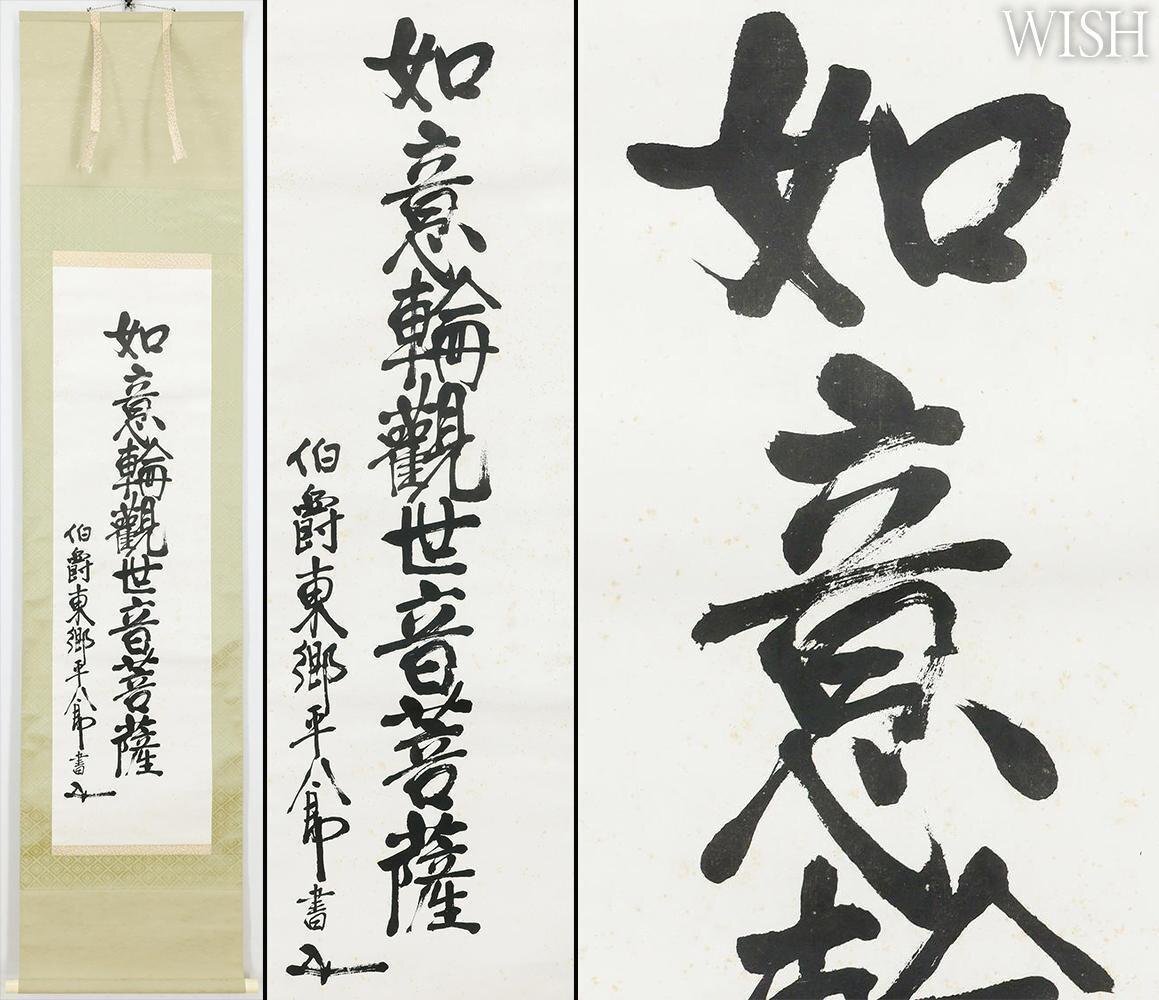 如意輪觀世音菩薩
伯爵東郷平八郎書
如意輪觀世音菩薩
伯爵東郷平八郎書
如意
WISH